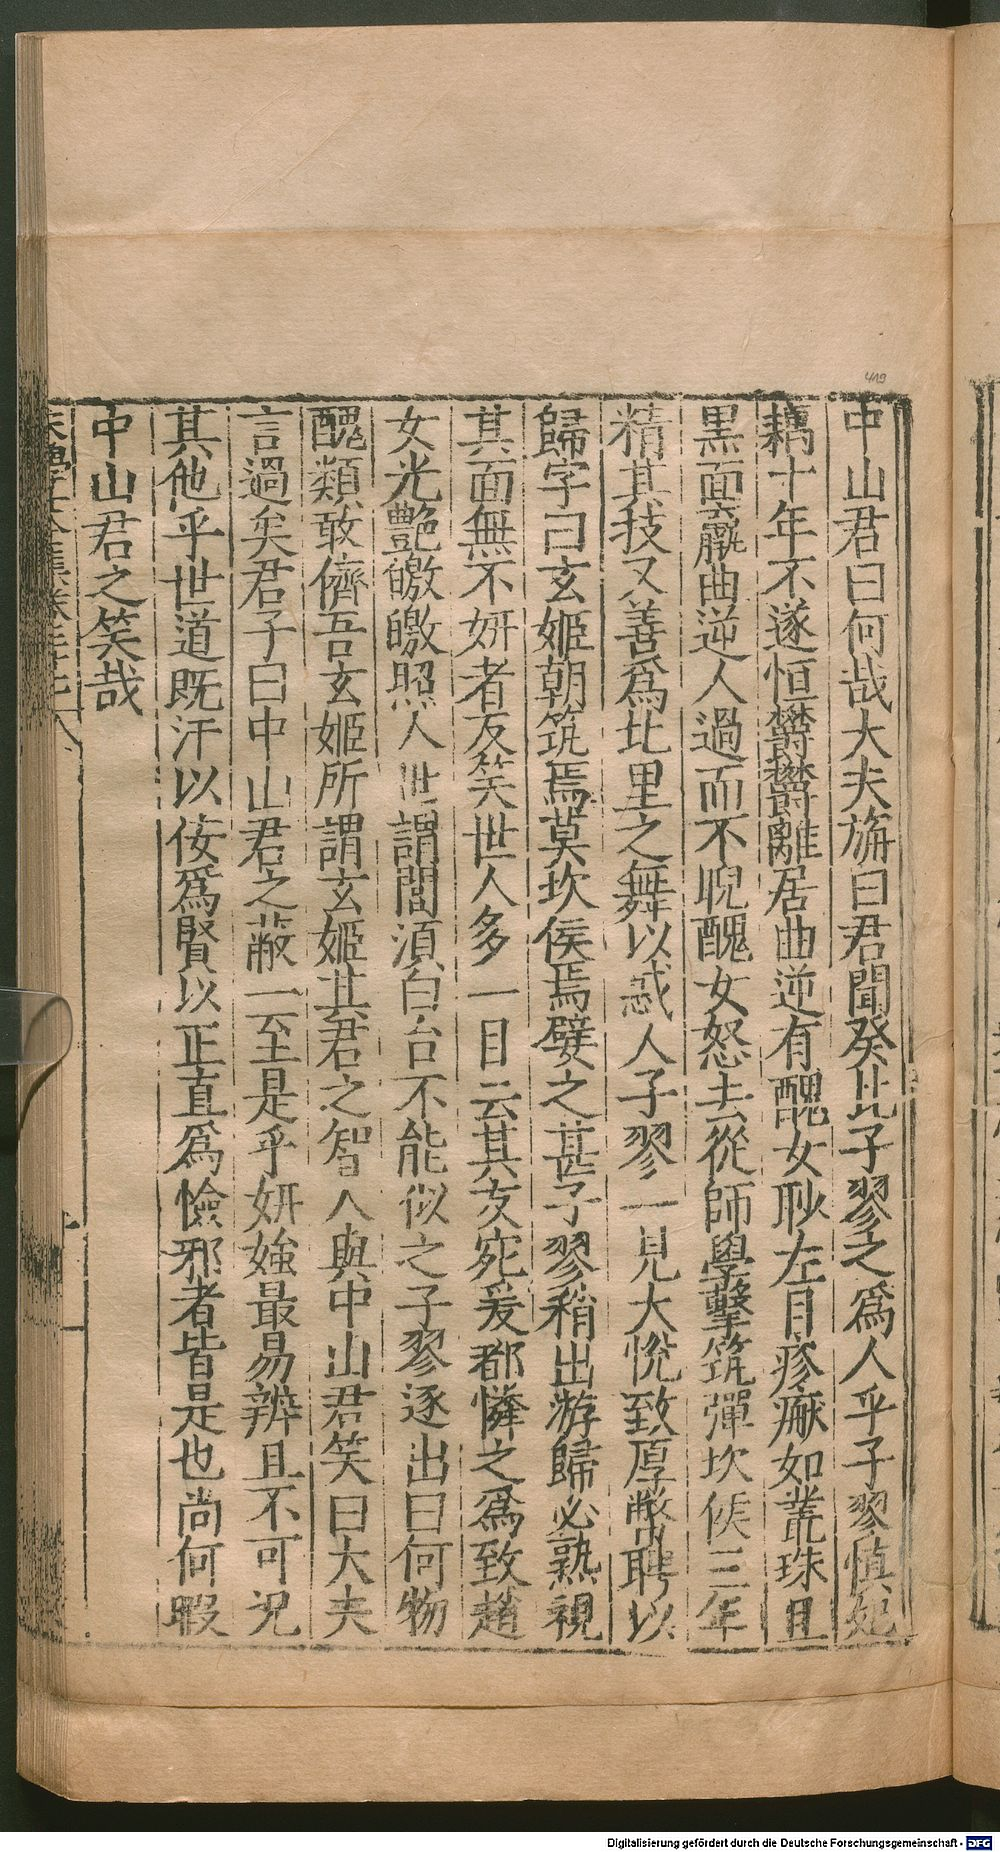 中山君曰何哉大夫旃曰君聞癸北子翏之爲人乎子翏愼妃
耦十年不遂恒欝欝離居曲逆有醜女眇左目疹瘶如叢珠且
黒面羸曲逆人過而不睨醜女怒去從師學擊筑彈坎侯三年
精其技又善爲北里之舞以惑人子翏一見大悅致厚幣聘以
歸字曰玄姬朝筑焉莫坎侯焉嬖之甚子翏稍出游歸必熟視
其面無不姸者反笑世人多一目云其友宛爰都憐之爲致趙
女光艷皦皦照人世謂閭湏白台不能似之子翏逐出曰何物
醜類敢儕吾玄姬所謂玄姬其君之智人與中山君笑曰大夫
言過矣君子曰中山君之蔽一至是乎姸媸最易辨且不可况
其他乎世道既汙以佞爲賢以正直爲憸邪者皆是也尚何暇
中山君之笑哉
419
Digitalisierung gefördert durch die Deutsche Forschungsgemeinschaft - DFG